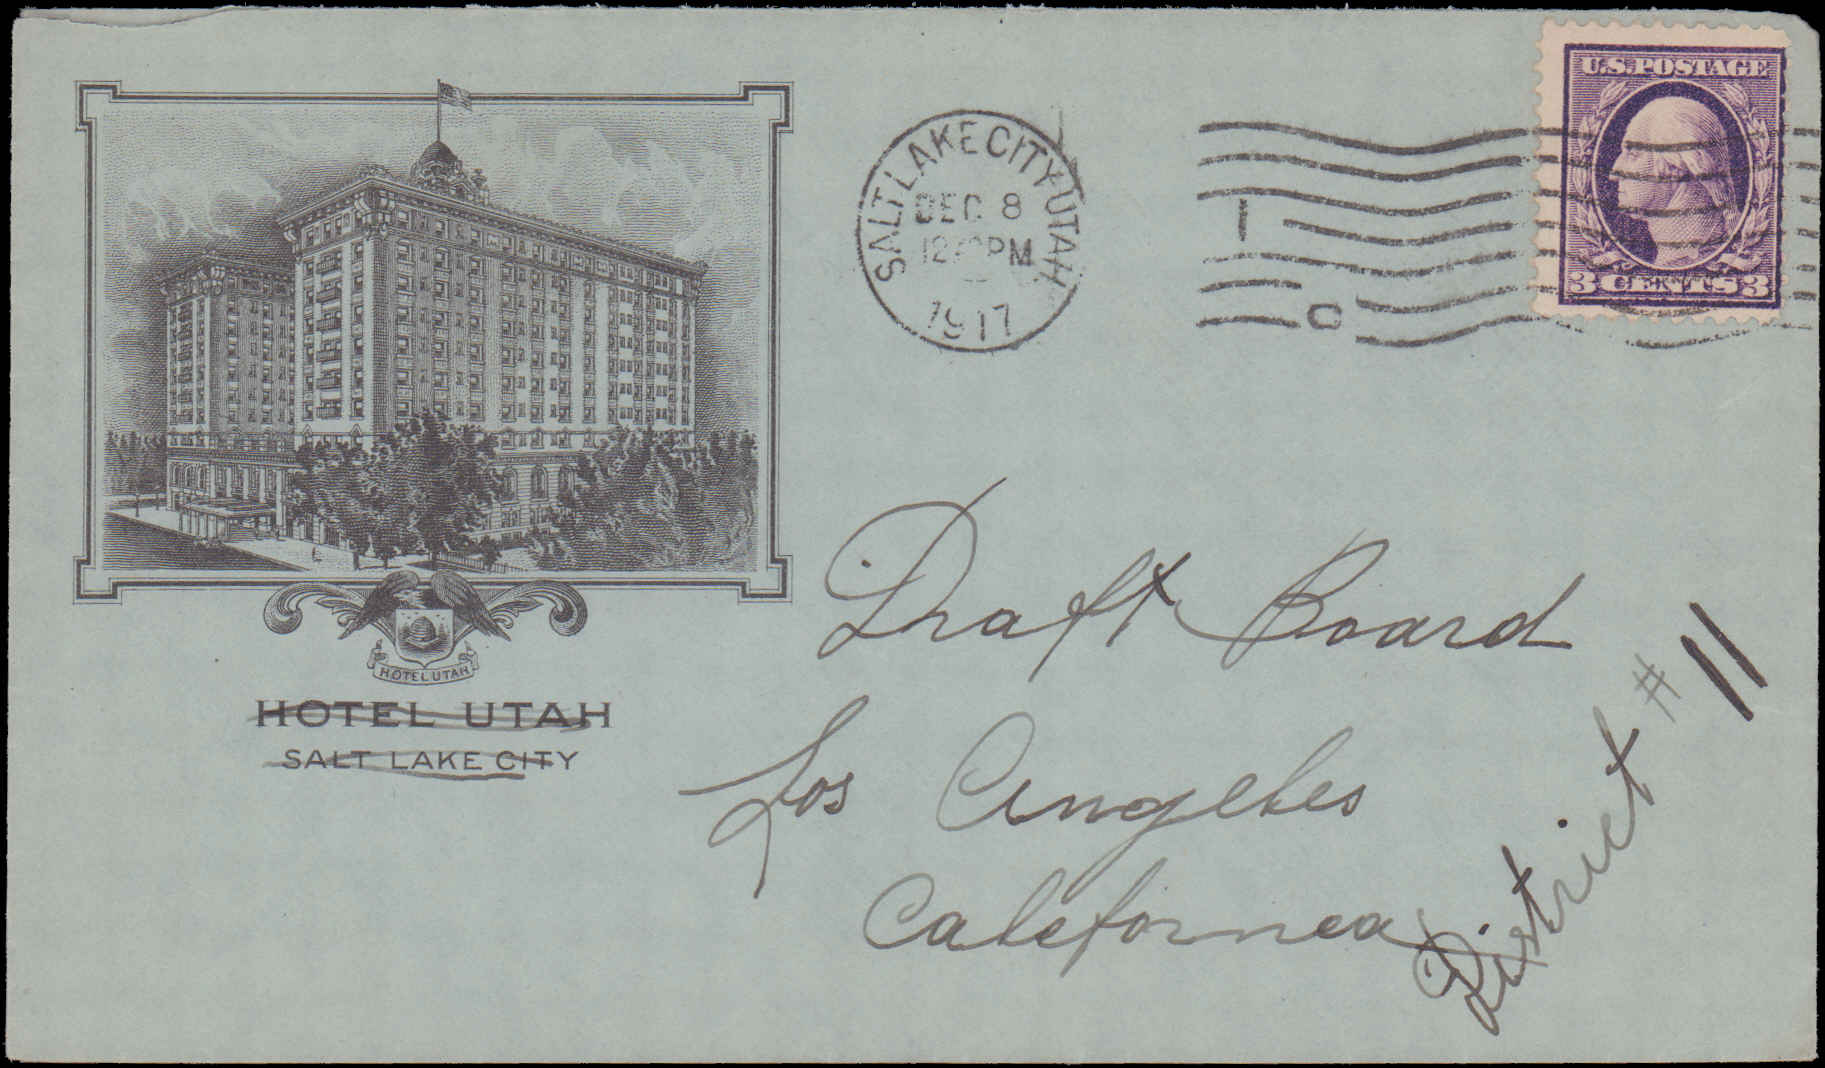 HOTEL UTAH
HOTEL UTAH
SALT LAKE CITY
SALT LAKE CITY, UTAH
DEC 8
PM
1917
1
C
U.S. POSTAGE
3 CENTS 3
Draft Board
Los Angeles
California
District # 11